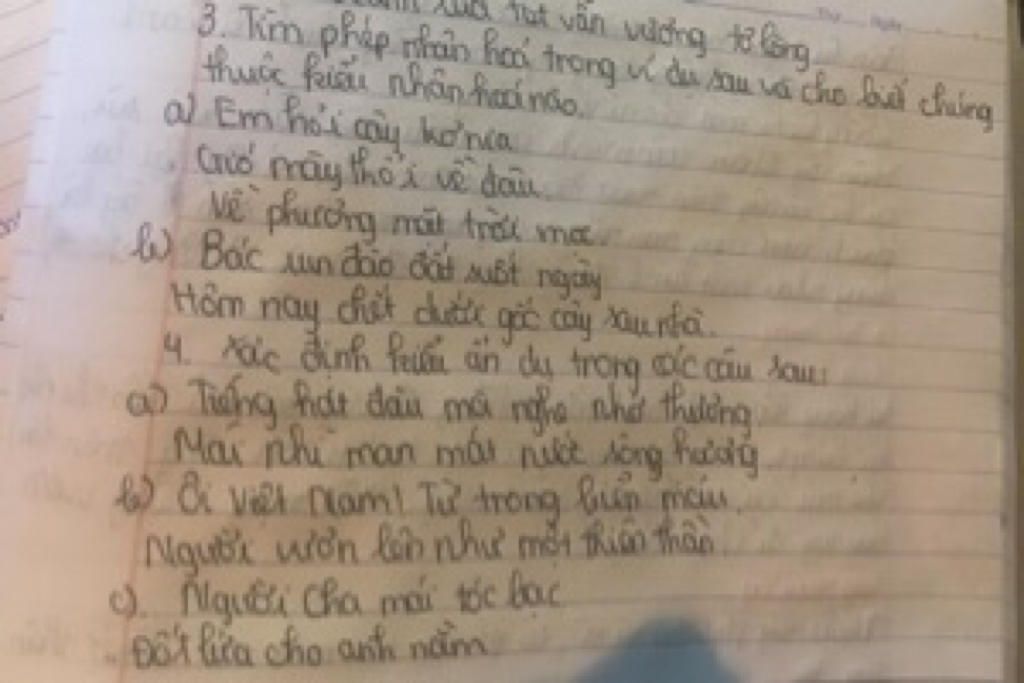 xưa vạt vần vương tơ lòng
3. Tìm phép nhân hoá trong ví dụ sau và cho biết chúng
thuộc kiểu nhân hoá nào.
a) Em hỏi cây kơnia
Gió mày thổi về đâu.
Về phương mặt trời mọc
b) Bác giun đào đất suốt ngày
Hôm nay chết dưới gốc cây sau nhà.
4. Xác định kiểu ẩn dụ trong các câu sau:
a) Tiếng hát đâu mà nghe nhớ thương
Mái nhì man mát nước sông hương
b) Ôi Việt Nam! Từ trong biển máu.
Người vươn lên như một thiên thần
c). Người Cha mái tóc bạc
Đốt lửa cho anh nằm